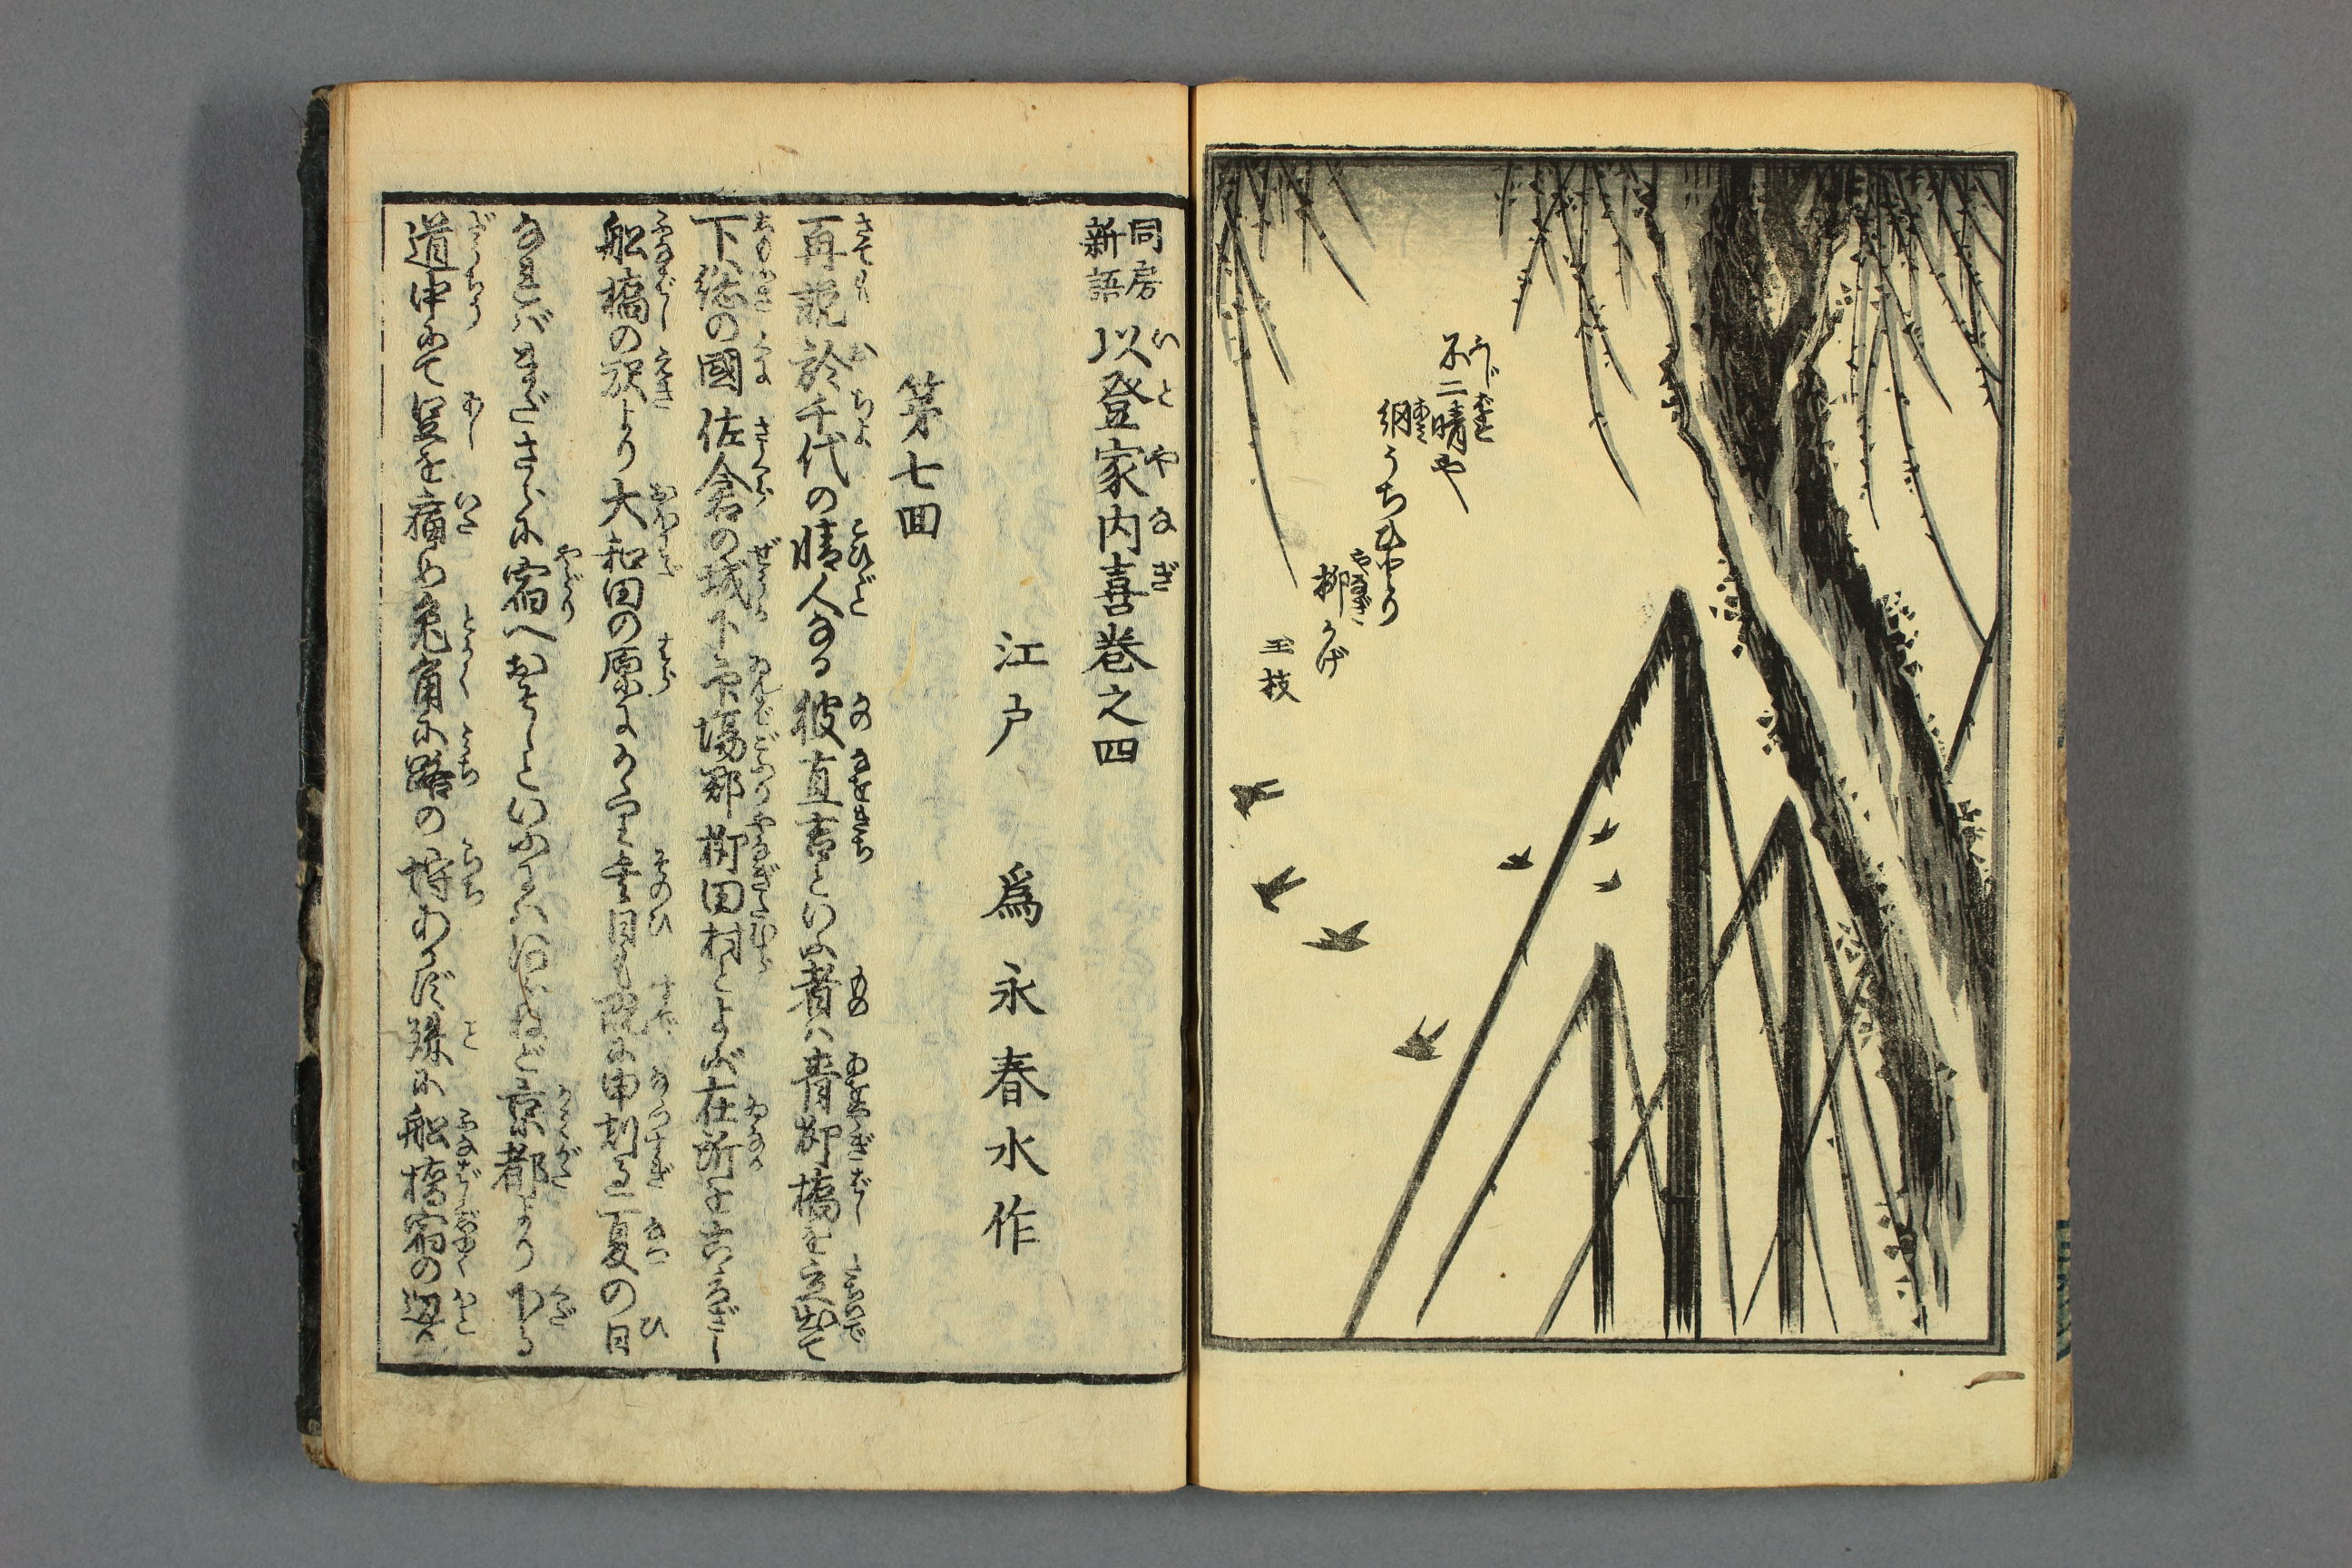 不二晴や
網うちむかふ
柳かげ
玉枝
同房新語 以登家内喜巻之四
江戸 為永春水作
第七回
再説於千代の情人なる彼直吉といふ者ハ青柳橋を立出て
下総の國佐倉の城下印旛郡柳田村とよぶ在所を
船橋の駅より大和田の原にかゝりし其日も既に申刻過夏の日
なれバまださのミ宿へおそしといふにハあらねど京都より下る
道中にて足を痛め兎角に路の捗あらず殊に船橋宿の